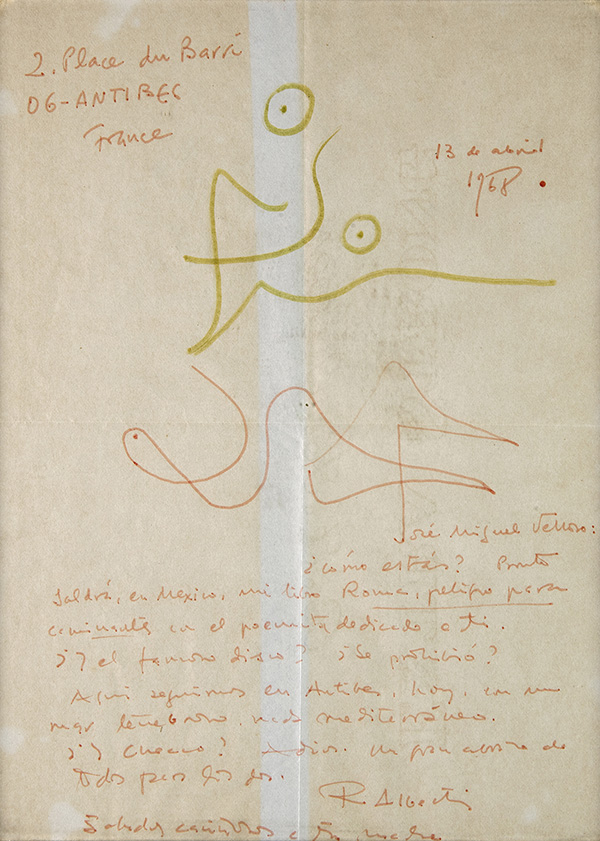 2, Place du Barri
06-ANTIBES
France
13 de abril
1968.
José Miguel Velloso:
¿cómo estás? Pronto
saldrá, en México, mi libro Roma, peligro para
caminantes con el poemita dedicado a ti.
¿Y el famoso disco? ¿Se prohibió?
Aquí seguimos en Antibes, hoy, con un
mar tenebroso, nada mediterráneo.
¿Y Checco? Adiós. Un gran abrazo de
todos para los dos.
R. Alberti
Saludos cariñosos a tu madre